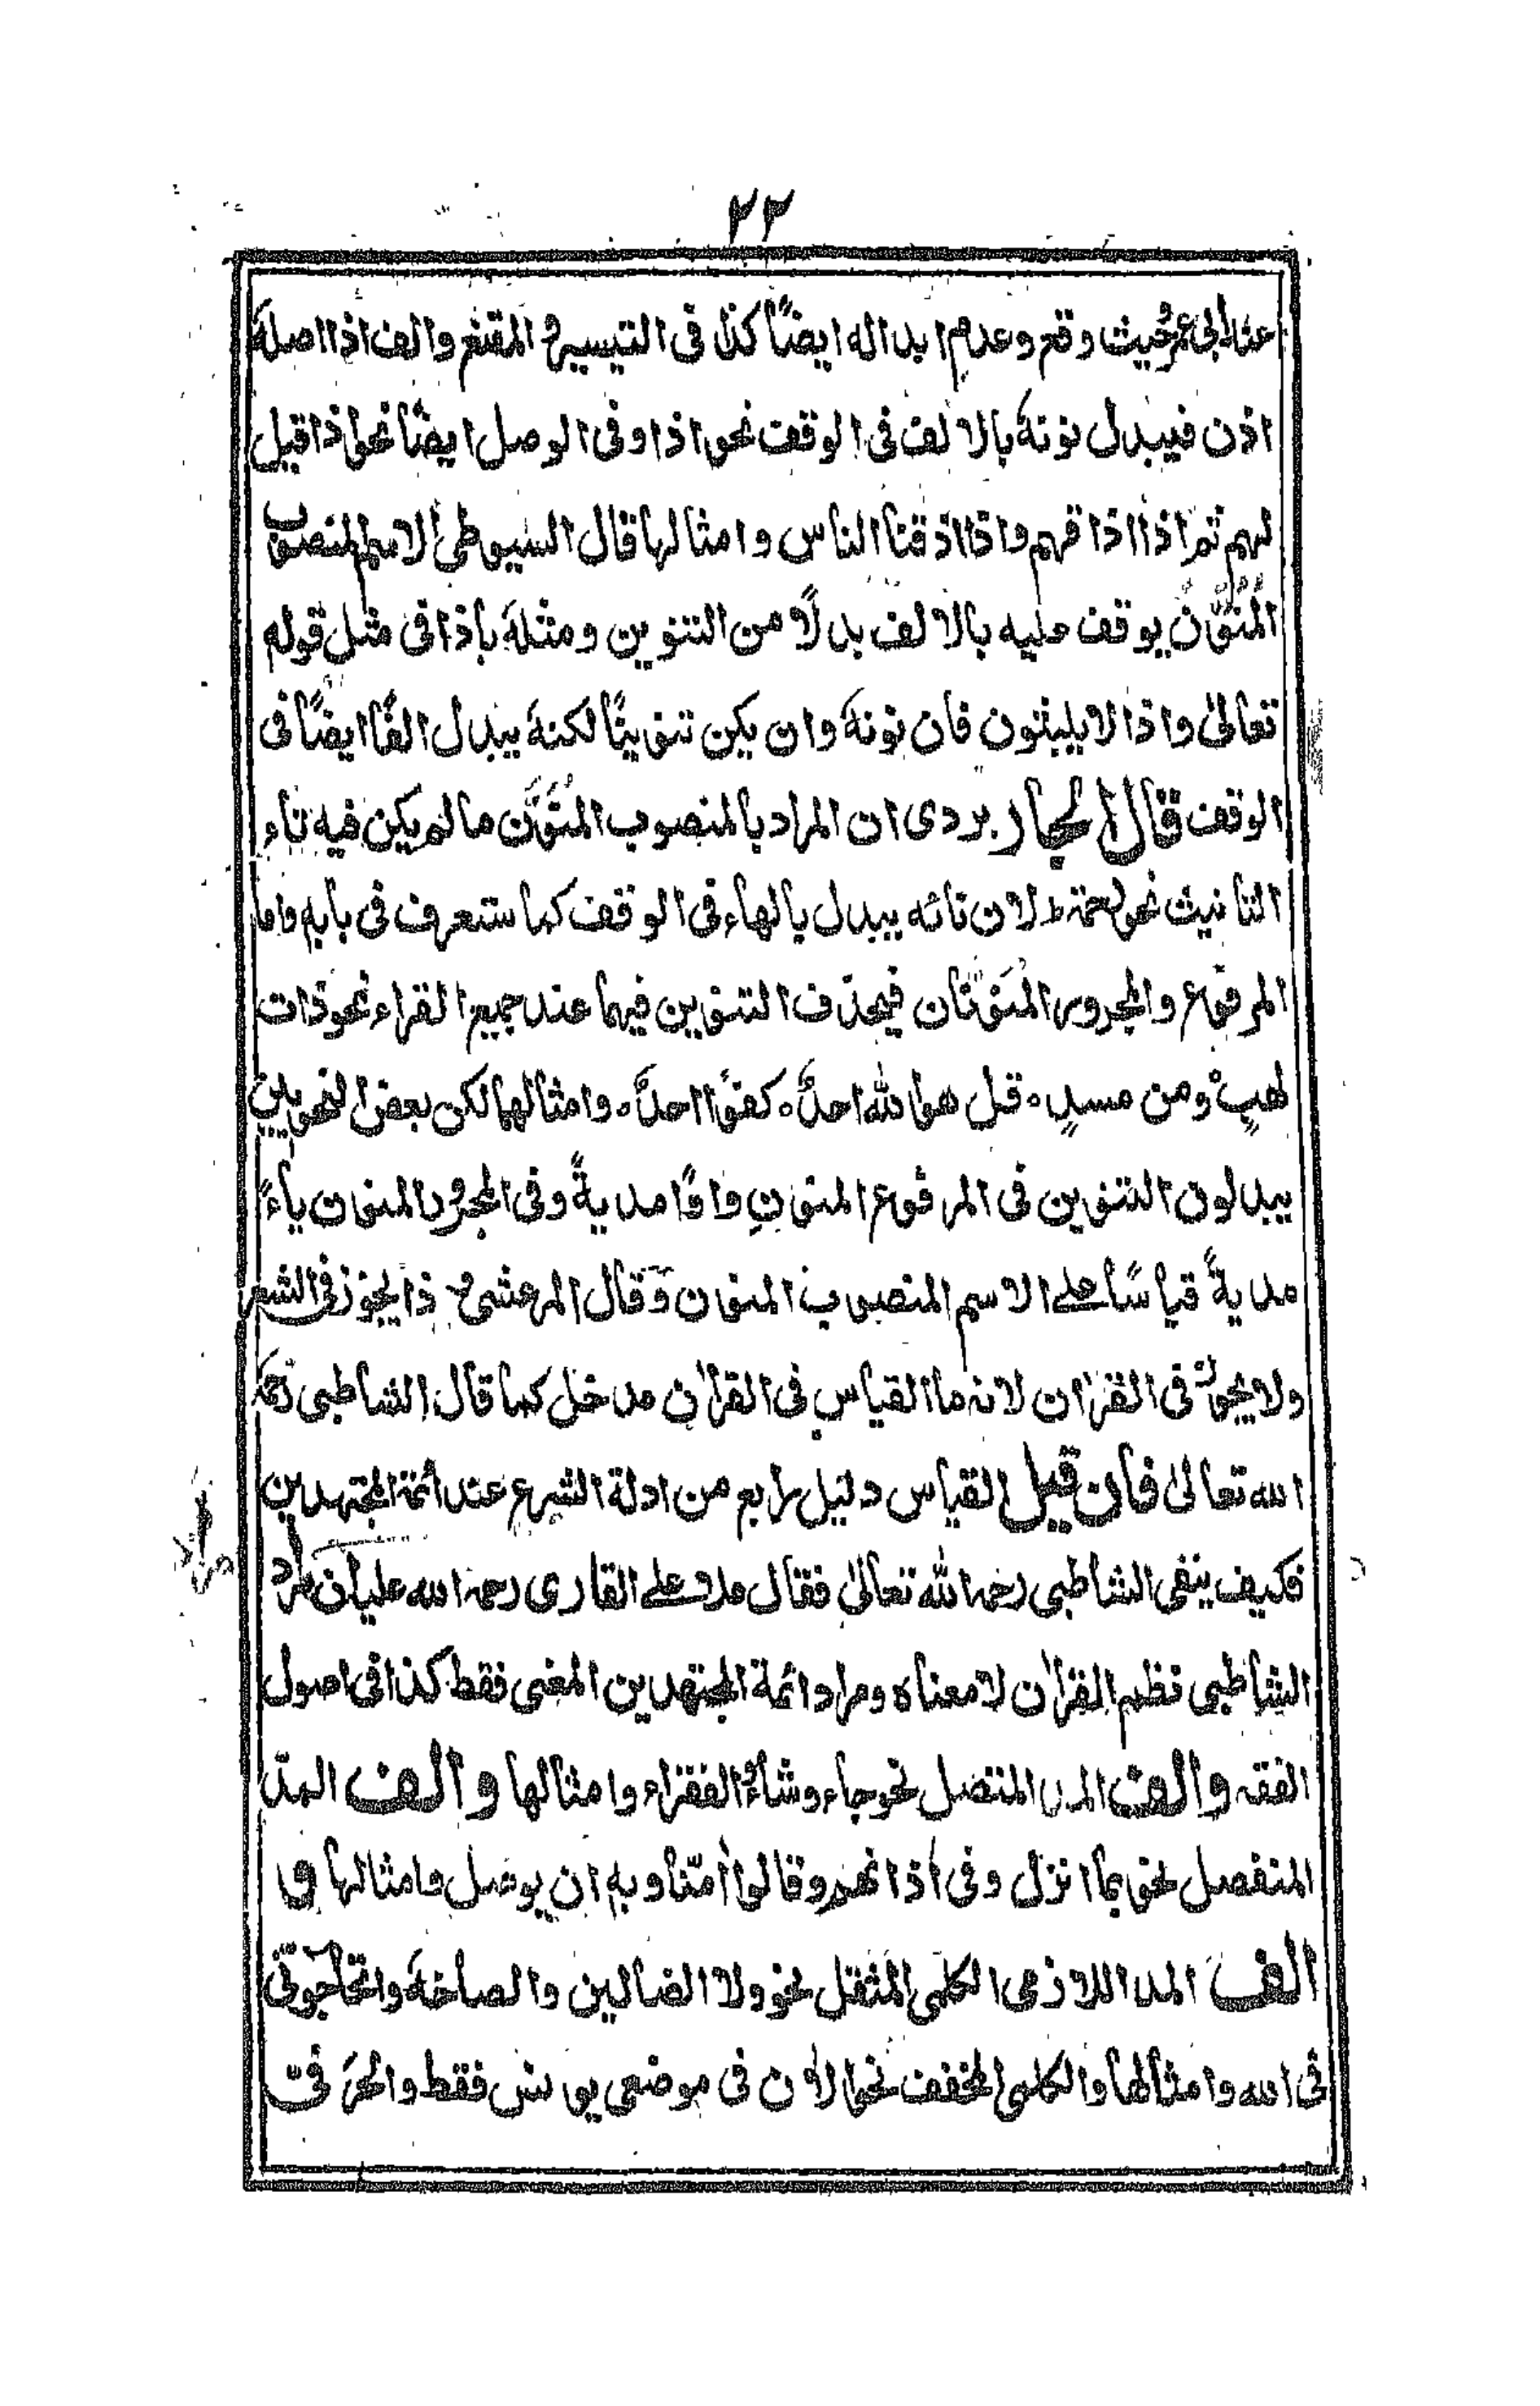 ٢٢
عند ابى عمر حيث وقع وعدم ابداله ايضًا كذا فى التيسير و المقنع والف اذا اصلهٗ
اذن فيبدل نونهٗ بالالف فى الوقف نحو اذا وفى الوصل ايضًا نحو اذا قيل
لهم ثم اذا اذاقهم واذا اذقنا الناس وامثالها قال السيوطى الاسم المنصوب
المُنَوَّنُ يوقف عليه بالالف بدلًا من التنوين ومثلهٗ باذا فى مثل قوله
تعالىٰ واذا لا يلبثون فان نونهٗ وان يكن تنوينًا لكنهٗ يبدل الفًا ايضًا فى
الوقف قال الجار بردى ان المراد بالمنصوب المُنَوَّن مالم يكن فيه تاء
التانيث نحو نعمة ط لان تائه يبدل بالهاء فى الوقف كما ستعرف فى بابه واما
المرفوع والمجرور المنوّنان فيحذف التنوين فيهما عند جميع القراء نحو ذات
لهبٍ ومن مسدٍ ۰ قل هو الله احدٌ ۰ كفوًا احدٌ ۰ وامثالهما لكن بعض النحويين
يبدلون التنوين فى المرفوع المنونِ واوًا مديةً وفى المجرور المنون ياءً
مديةً قياسًا على الاسم المنصوب المنون وقال المرعشى ذا يجوز فى الشعر
ولا يجوز فى القراٰن لانه ما القياس فى القراٰن مدخل كما قال الشاطبى رحمه
الله تعالىٰ فان قيل القياس دليل رابع من ادلة الشرع عند ائمة المجتهدين
فكيف ينفى الشاطبى رحمه الله تعالىٰ فقال ملا على القارى رحمه الله عليه ان مراد
الشاطبى نظم القراٰن لا معناه ومراد ائمة المجتهدين المعنى فقط كذا فى اصول
الفقه والف المد المتصل نحو جاء وشاء الفقراء وامثالها والف المدّ
المنفصل نحو بما انزل وفى اٰذانهم وقالوا اٰمنّا وبه ان يوصل وامثالها و
الف المد اللازمى الكلمى المثقل نحو ولا الضالين والصاخة واتحاجّونّى
فى الله وامثالها والكلمى المخفف نحو اٰلاٰن فى موضعى يونس فقط والحرفىّ